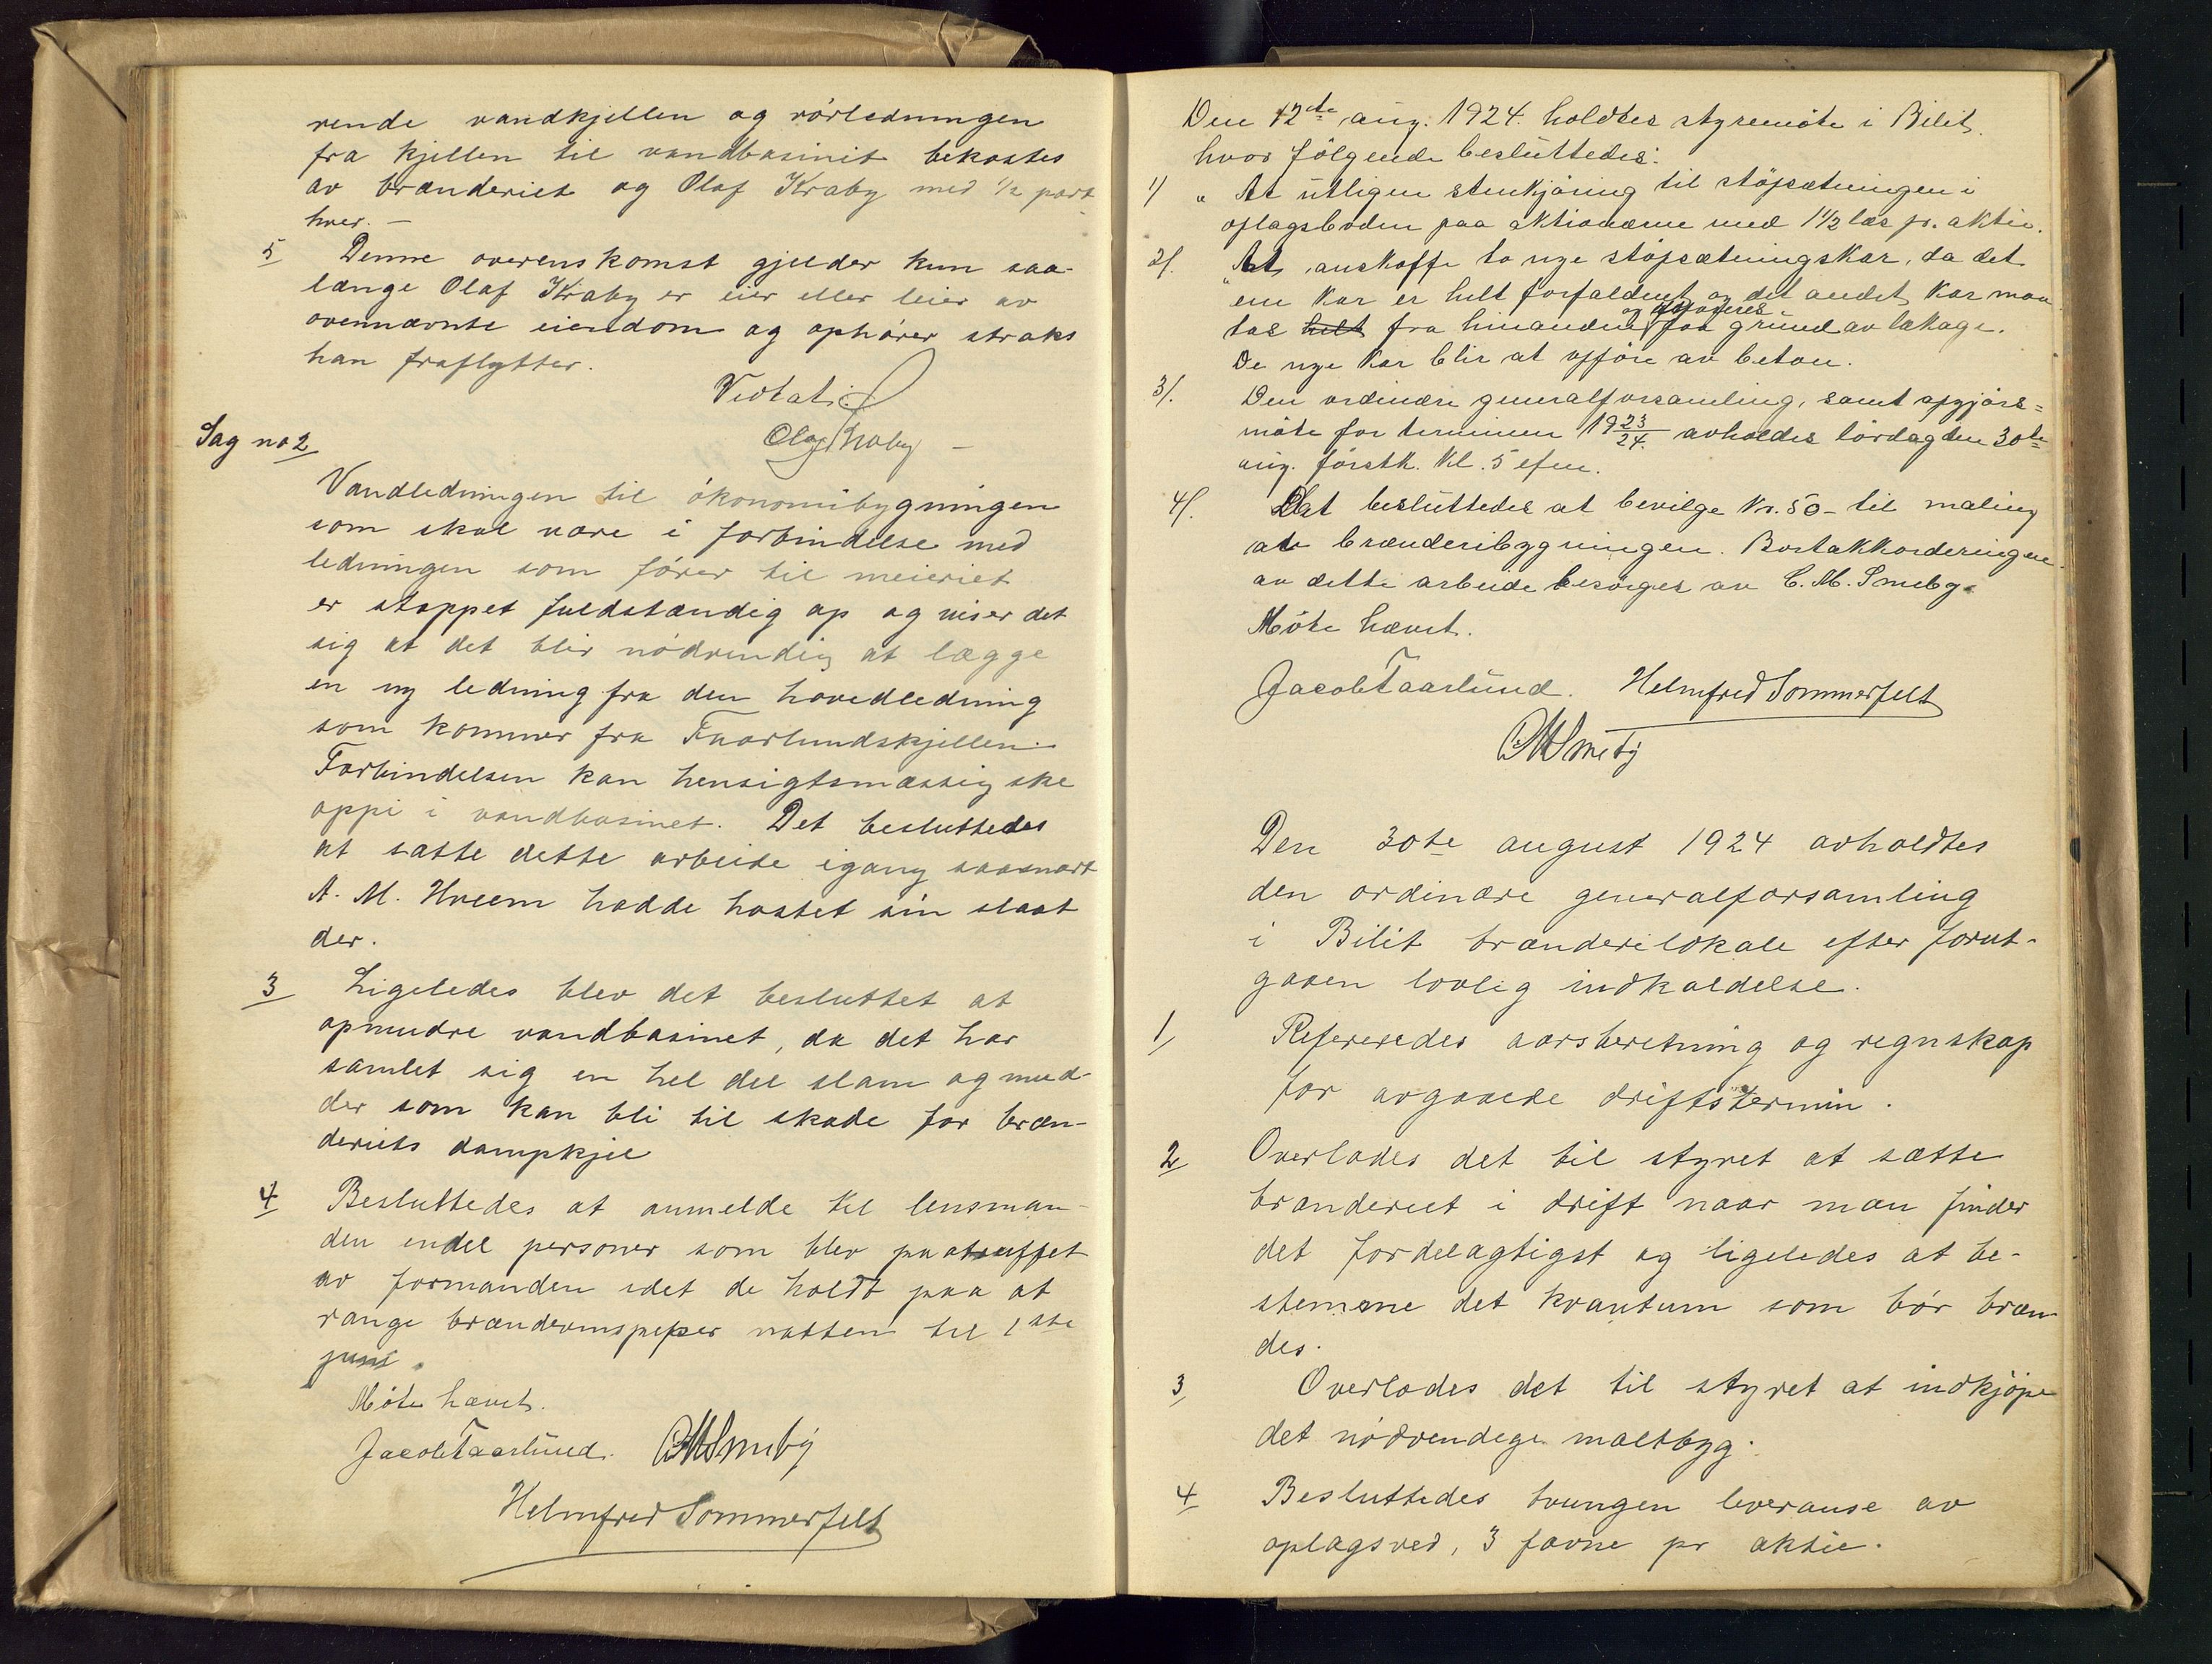 rende vandkjellen og rörledningen
fra kjellen til vandbasinit bekostes
av brænderiet og Olaf Kraby med 1/2 part
hver. —
5 Denne overenskomst gjelder kun saa-
længe Olaf Kraby er eier eller leier av
ovennævnte eiendom og ophörer straks
han fraflytter.
Vedtat:
Olaf Kraby —
Sag no 2
Vandledningen til ökonomibygningen
som skal være i forbindelse med
ledningen som förer til meieriet
er stoppet fuldstændig op og viser det
sig at det blir nödvendig at lægge
en ny ledning fra den hovedledning
som kommer fra Faarlundskjellen.
Forbindelsen kan hensigtsmæssig ske
oppi i vandbasinet. Det besluttedes
at sætte dette arbeide igang saasnart
A. M. Hveem hadde høstet sin slaat
der.
3 Ligeledes blev det besluttet at
opmudre vandbasinet, da det har
samlet sig en hel del slam og mud-
der som kan bli til skade for bræn-
deriets dampkjel
4 Besluttedes at anmelde til lensman-
den endel personer som blev paatruffet
av formanden idet de holdt paa at
range brændevinspeper natten til 1ste
juni.
Möte hævet.
Jacob Taarlund. CMSmeby
Helmfred Sommerfelt
Den 12te aug. 1924. holdtes styremöte i Bilit.
hvor fölgende besluttedes:
1) " At utligne stenkjöring til stöpsætningen i
oplagsboden paa aktionærene med 1 1/2 læs pr. aktie.
2). "At anskaffe to nye stöpsætningskar, da det
ene kar er helt forfaldent og det andet kar maa
og repareres
tas helt fra hinanden paa grund av lækage.
De nye kar blir at opföre av beton.
3). Den ordinære generalforsamling, samt opgjörs=
möte for terminen 1923/24. avholdes lördag den 30te
aug. förstk. kl. 5 efm.
4). Det besluttedes at bevilge kr. 50- til maling
av brænderibygningen. Bortakkorderingen
av dette arbeide besörges av C. M. Smeby.
Möte hævet.
Jacob Taarlund. Helmfred Sommerfelt
CMSmeby
Den 30te august 1924 avholdtes
den ordinære generalforsamling
i Bilit brænderilokale efter forut-
gaaen lovlig indkaldelse.
1 Refereredes aarsberetning og regnskap
for avgaaede driftstermin.
2 Overlodes det til styret at sætte
brænderiet i drift naar man finder
det fordelagtigst og ligeledes at be-
stemme det kvantum som bör bræn-
des.
3 Overlodes det til styret at indkjöpe
det nödvendige maltbyg.
4 Besluttedes tvungen leveranse av
oplagsved, 3 favne pr aktie.